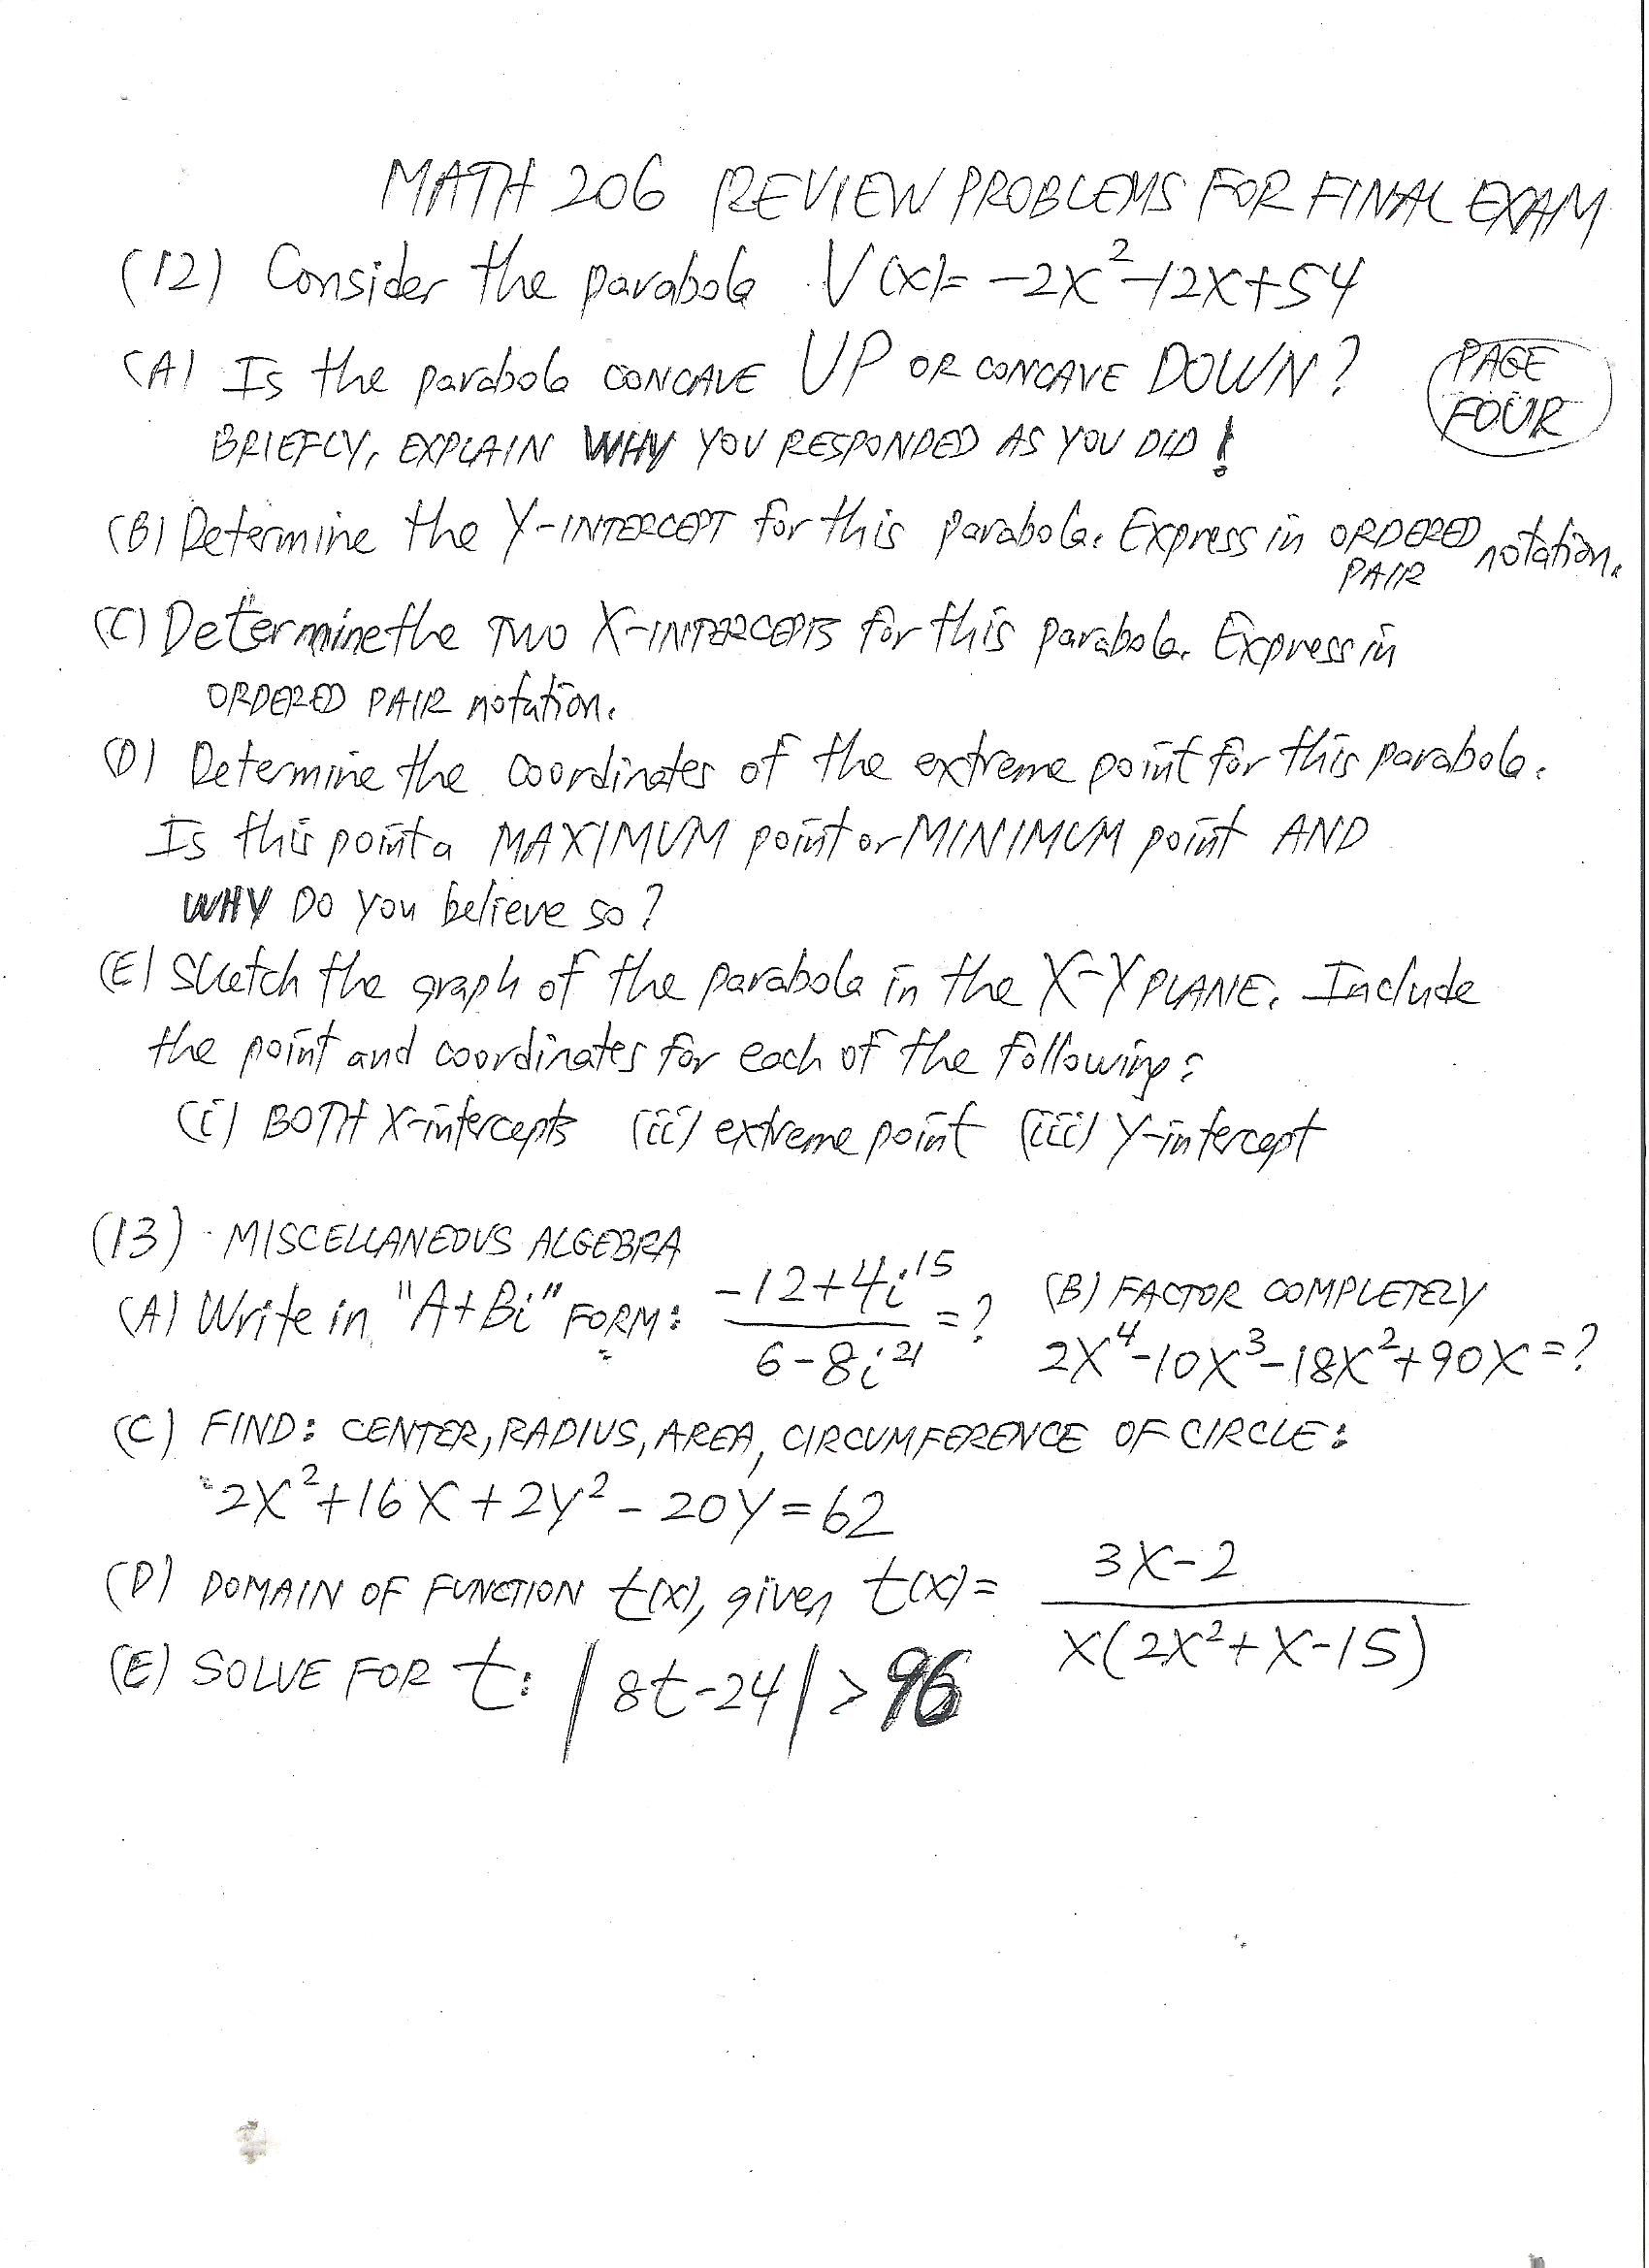 MATH 206 REVIEW PROBLEMS FOR FINAL EXAM
(12) Consider the parabola V(x)= -2x²-12x+54
(A) Is the parabola CONCAVE UP OR CONCAVE DOWN?
PAGE
FOUR
BRIEFLY, EXPLAIN WHY YOU RESPONDED AS YOU DID!
(B) Determine the Y-INTERCEPT for this parabola. Express in ORDERED PAIR notation.
(C) Determine the TWO X-INTERCEPTS for this parabola. Express in
ORDERED PAIR notation.
(D) Determine the coordinates of the extreme point for this parabola.
Is this point a MAXIMUM point or MINIMUM point AND
WHY DO you believe so?
(E) Sketch the graph of the parabola in the X-Y PLANE. Include
the point and coordinates for each of the following:
(i) BOTH X-intercepts (ii) extreme point (iii) Y-intercept
(13) MISCELLANEOUS ALGEBRA
(A) Write in "A+Bi" FORM: (-12+4i¹⁵)/(6-8i²¹) = ?
(B) FACTOR COMPLETELY
2x⁴-10x³-18x²+90x=?
(C) FIND: CENTER, RADIUS, AREA, CIRCUMFERENCE OF CIRCLE:
2x²+16x+2y²-20y=62
(D) DOMAIN OF FUNCTION t(x), given t(x)= (3x-2)/(x(2x²+x-15))
(E) SOLVE FOR t: |8t-24|>96